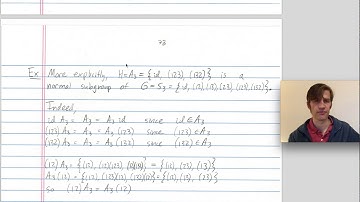 73
Ex More explicitly, H=A₃={id, (123), (132)} is a
normal subgroup of G=S₃={id, (12), (13), (23), (123), (132)}.
Indeed,
id A₃ = A₃ = A₃ id since id ∈ A₃
(123)A₃ = A₃ = A₃ (123) since (123) ∈ A₃
(132)A₃ = A₃ = A₃ (132) since (132) ∈ A₃
(12)A₃ = {(12), (12)(123), (12)(132)} = {(12), (23), (13)}
A₃(12) = {(12), (123)(12), (132)(12)} = {(12), (13), (23)}
so (12)A₃ = A₃(12)